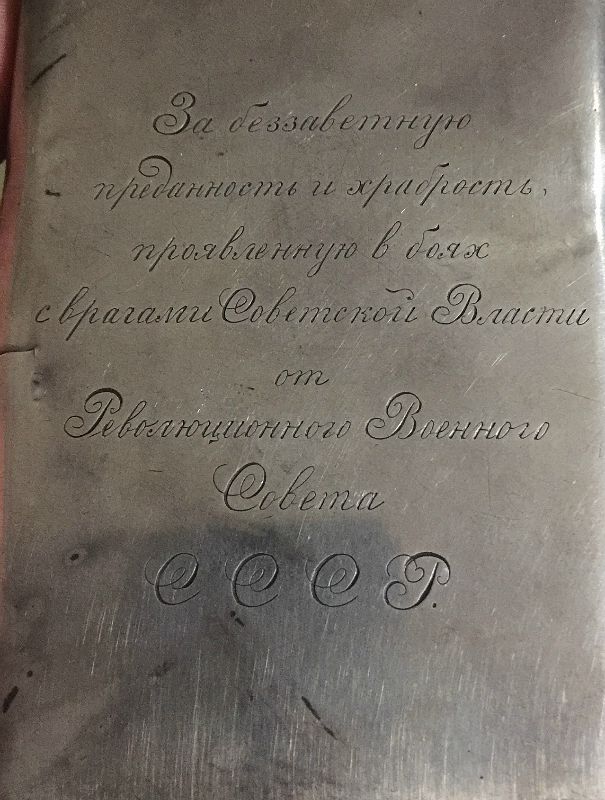 За беззаветную
преданность и храбрость,
проявленную в боях
с врагами Советской Власти
от
Революционного Военного
Совета
СССР.